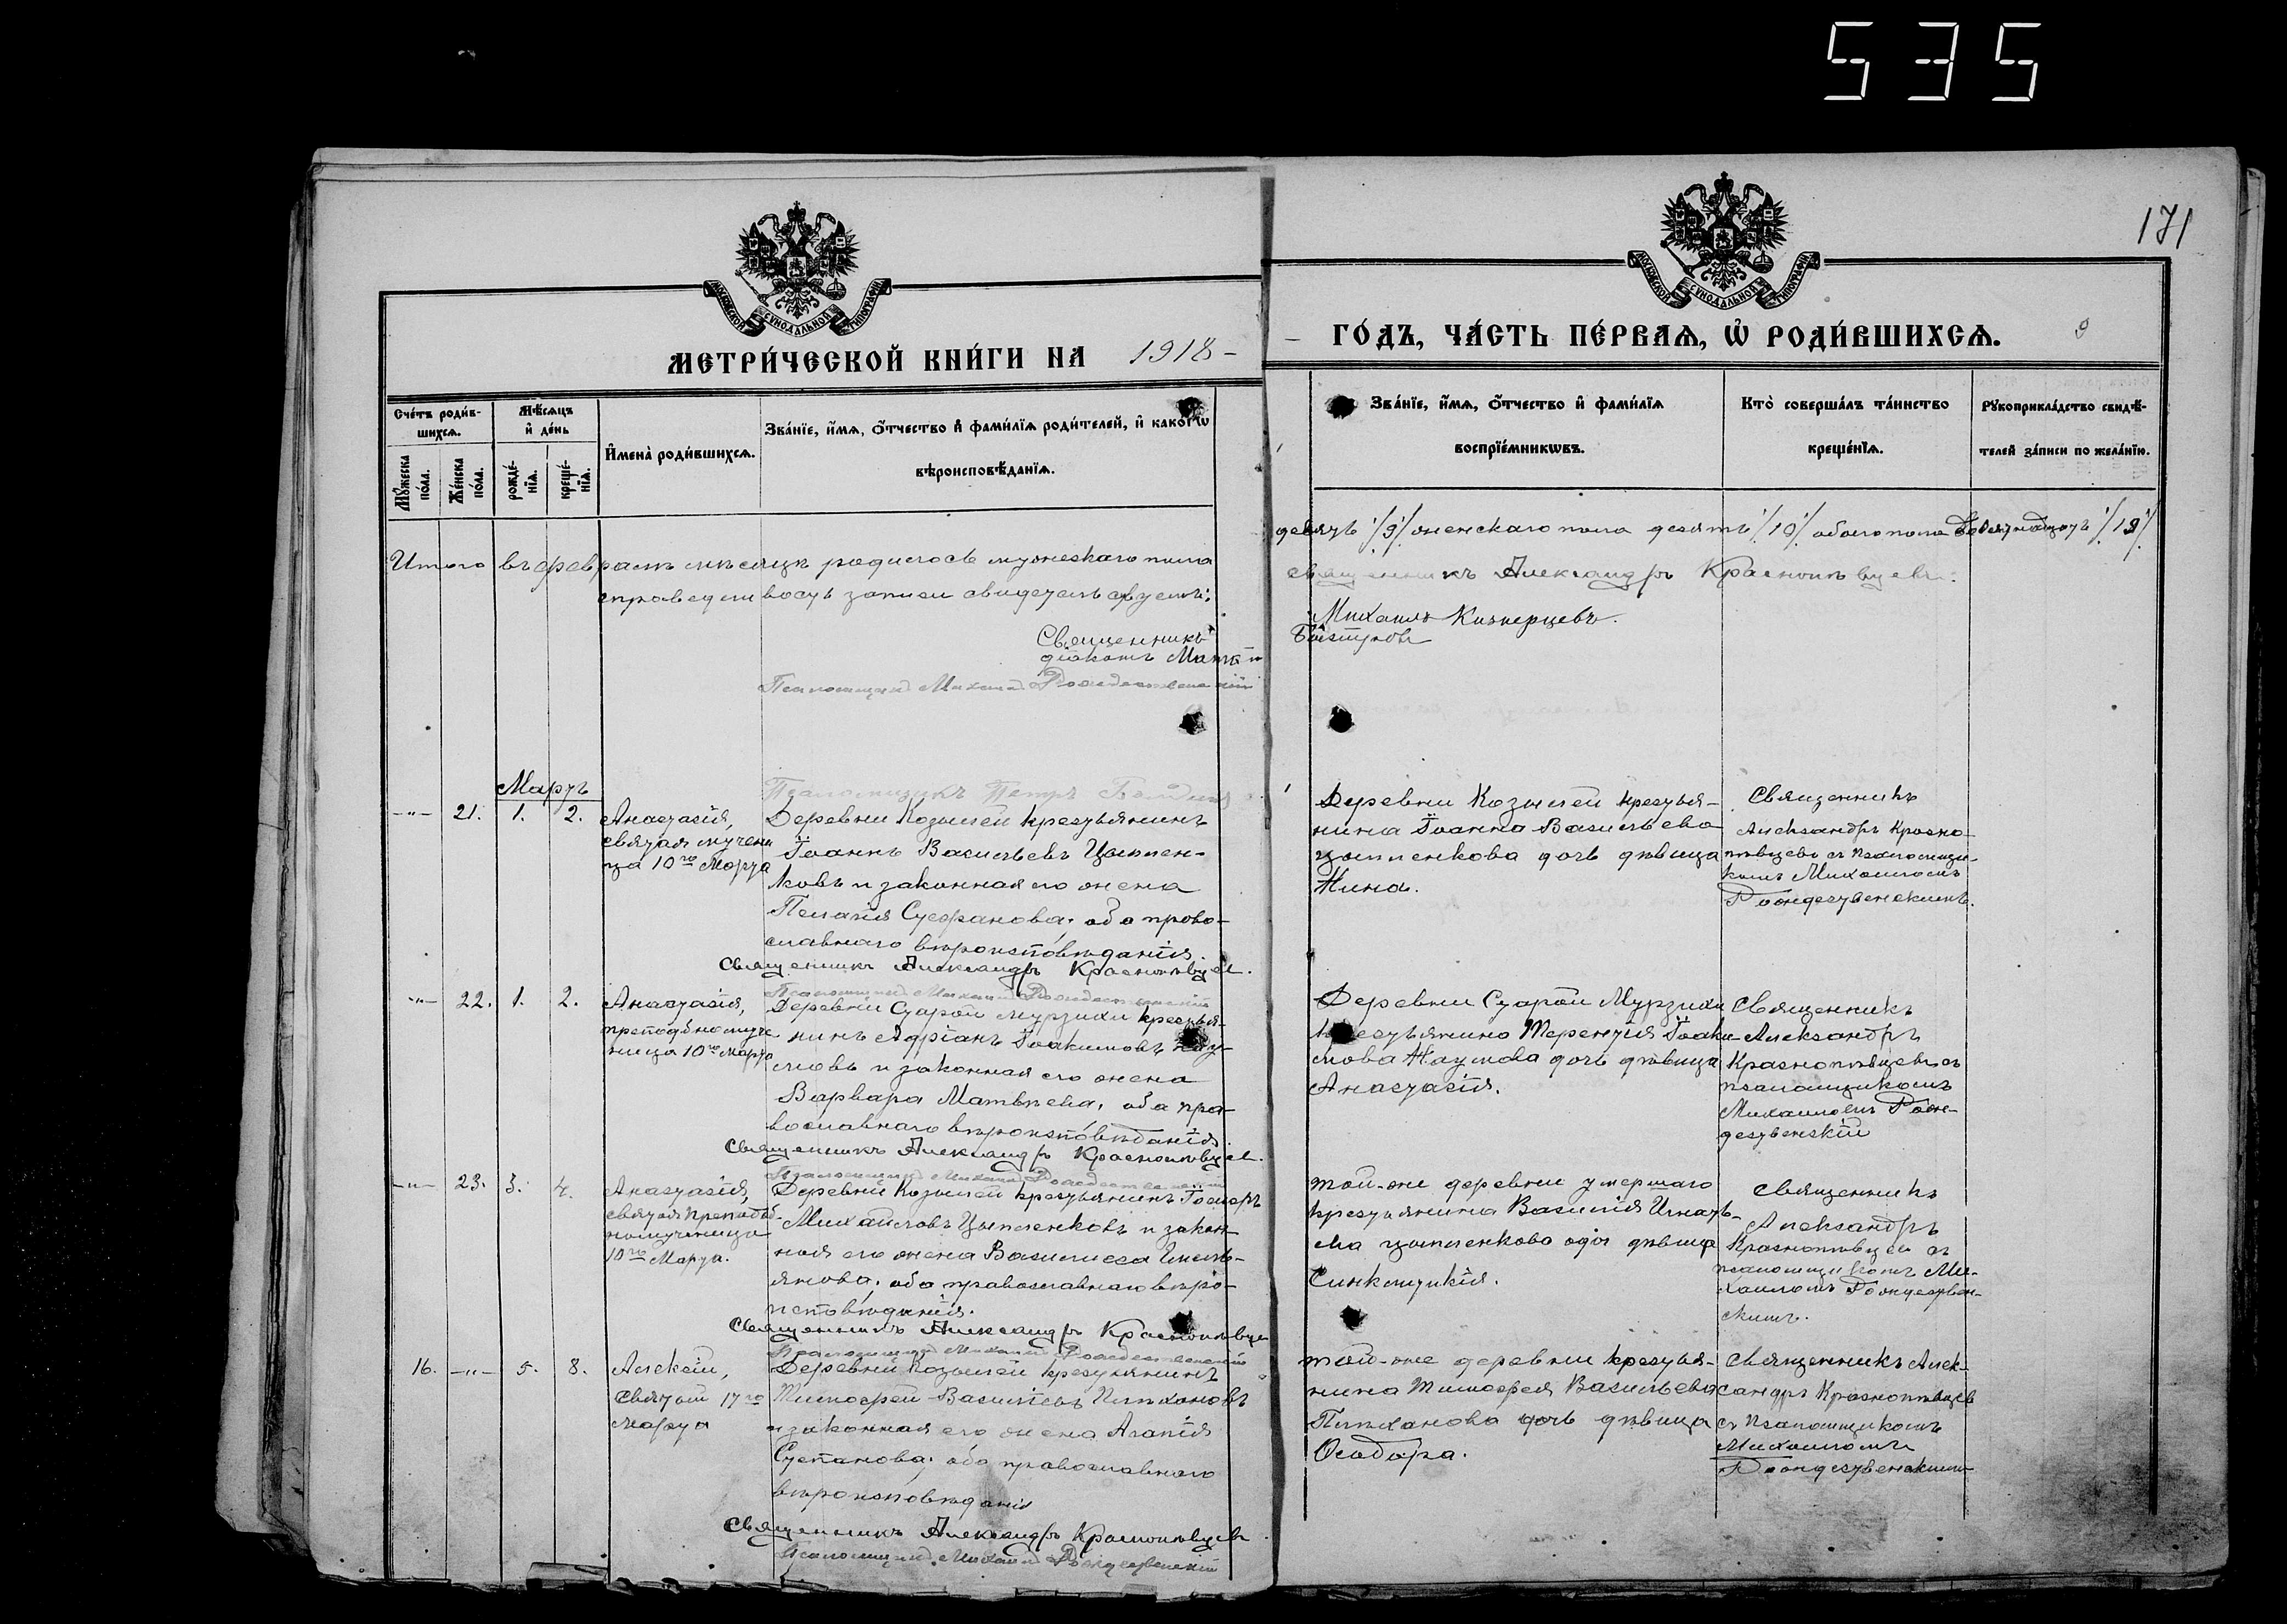 535
171
МОСКОВСКОЙ СѴНОДАЛЬНОЙ ТИПОГРАФІИ
МОСКОВСКОЙ СѴНОДАЛЬНОЙ ТИПОГРАФІИ
МЕТРИ́ЧЕСКОЙ КНИ́ГИ НА 1918 -
- ГО́ДЪ, ЧА́СТЬ ПЕ́РВАѦ, Ѡ҆ РОДИ́ВШИХСѦ. 9
Сче́тъ роди́в-
шихсѧ.
Мꙋ́жеска
по́ла.
Же́нска
по́ла.
Мѣ́сѧцъ
и҆ де́нь
рожде́-
нїѧ.
креще́-
нїѧ.
И҆мена̀ роди́вшихсѧ.
Зва́нїе, и҆́мѧ, ѻ҆́тчество и҆ фами́лїѧ роди́телей, и҆ како́гѡ
вѣроисповѣ́данїѧ.
Зва́нїе, и҆́мѧ, ѻ҆́тчество и҆ фами́лїѧ
воспрїе́мникѡвъ.
Кто̀ соверша́лъ та́инство
креще́нїѧ.
Рꙋкоприкла́дство свидѣ́-
телей за́писи по жела́нїю.
Итого въ февралѣ мѣсяцѣ родилось мужескаго пола
девять /9/ женскаго пола десять /10/ обоего пола девятнадцать /19/
справедливость записи свидетельствуемъ:
Священникъ
Священникъ Александръ Краснопѣвцевъ.
діаконъ
Михаилъ
Псаломщикъ Михаилъ Рождественскій
Мартъ
Псаломщикъ Петръ
21. 1. 2.
Анастасія,
святая мучени
ца 10го Марта
Деревни Козылей крестьянинъ
Іоаннъ Васильевъ Цыплен-
ковъ и законная его жена
Пелагія Стефанова; оба право-
славнаго вѣроисповѣданія.
Священникъ Александръ Краснопѣвцев.
Псаломщикъ Михаилъ Рождественскій
Деревни Козылей крестья-
нина Іоанна Васильева
Цыпленкова дочь дѣвица
Нина.
Священникъ
Александръ Красно-
пѣвцевъ съ псаломщи-
комъ Михаиломъ
Рождественскимъ.
22. 1. 2.
Анастасія,
преподобномуче
ница 10го Марта
Деревни Старой Мурзихи крестья-
нинъ Адріанъ Іоакимовъ Нау-
мовъ и законная его жена
Варвара Матвѣева; оба пра-
вославнаго вѣроисповѣданія.
Священникъ Александръ Краснопѣвцев.
Псаломщикъ Михаилъ Рождественскій
Деревни Старой Мурзихи
крестьянина Терентія Іоаки-
мова Наумова дочь дѣвица
Анастасія.
Священникъ
Александръ
Краснопѣвцевъ съ
псаломщикомъ
Михаиломъ Рож-
дественскій
23. 3. 4.
Анастасія,
святая преподоб-
номученица
10го Марта.
Деревни Козылей крестьянинъ
Михайловъ Цыпленковъ и закон-
ная его жена Василиса Емель-
янова; оба православнаго вѣро-
исповѣданія.
Священникъ Александръ Краснопѣвцев
Псаломщикъ Михаилъ Рождественскій
той-же деревни умершаго
крестьянина Василія Игнать-
ева Цыпленкова дочь дѣвица
Синклитикія.
Священникъ
Александръ
Краснопѣвцев съ
псаломщикомъ Ми-
хаиломъ Рождествен-
скимъ.
16. 5. 8.
Алексѣй,
Святый 17го
марта
Деревни Козылей крестьянинъ
Тимофей Васильевъ
и законная его жена Агапія
Степанова; оба православнаго
вѣроисповѣданія
Священникъ Александръ Краснопѣвцевъ
Псаломщикъ Михаилъ Рождественскій
той-же деревни крестья-
нина Тимофея Васильева
дочь дѣвица
Ѳеодора.
Священникъ Алек-
сандръ Краснопѣвцев
съ псаломщикомъ
Михаиломъ
Рождественскимъ